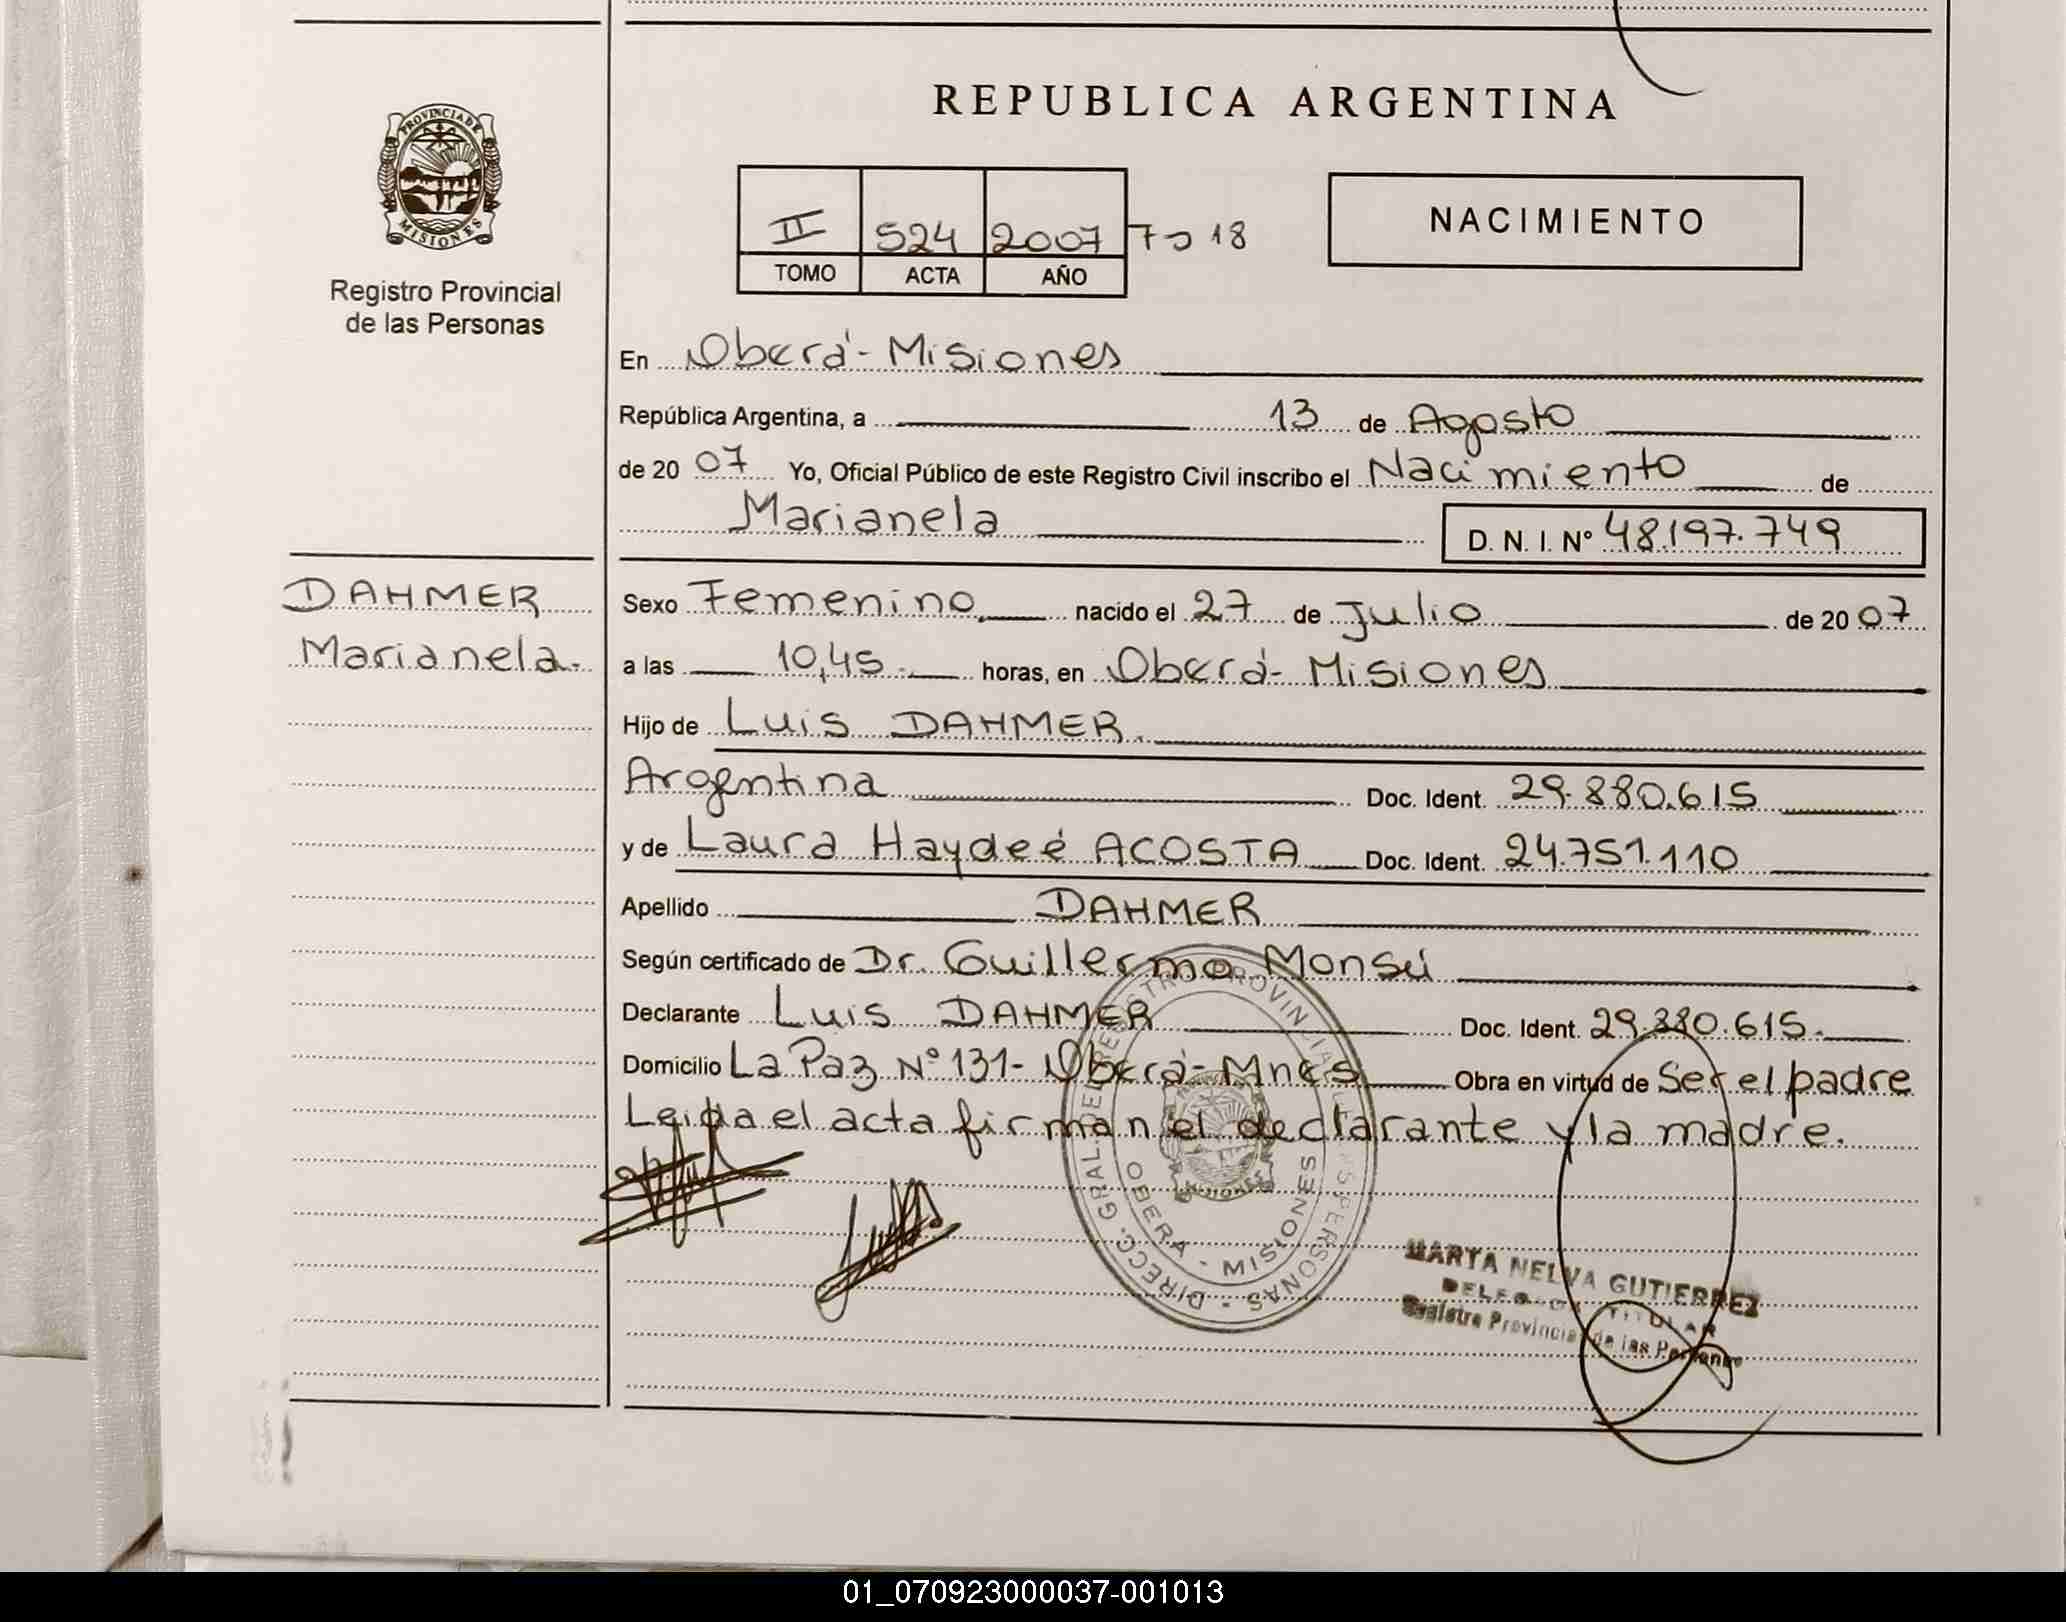 REPUBLICA ARGENTINA
PROVINCIA DE
MISIONES
Registro Provincial
de las Personas
II 524 2007 7-18
TOMO ACTA AÑO
NACIMIENTO
En Oberá - Misiones
República Argentina, a 13 de Agosto
de 20 07 Yo, Oficial Público de este Registro Civil inscribo el Nacimiento de
Marianela D. N. I. Nº 48.197.749
DAHMER
Marianela.
Sexo Femenino nacido el 27 de Julio de 20 07
a las 10,45 horas, en Oberá - Misiones
Hijo de Luis DAHMER.
Argentina Doc. Ident. 29.880.615
y de Laura Haydeé ACOSTA Doc. Ident. 24.751.110
Apellido DAHMER
Según certificado de Dr. Guillermo Monsú
Declarante Luis DAHMER Doc. Ident. 29.880.615.
Domicilio La Paz Nº 131 - Oberá - Mnes Obra en virtud de Ser el padre
Leida el acta firman el declarante y la madre.
DIRECC. GRAL DE REGISTRO PROVINCIAL PERSONAS
OBERA - MISIONES
MARTA NELVA GUTIERREZ
TITULAR
Registro Provincial de las Personas
01_070923000037-001013